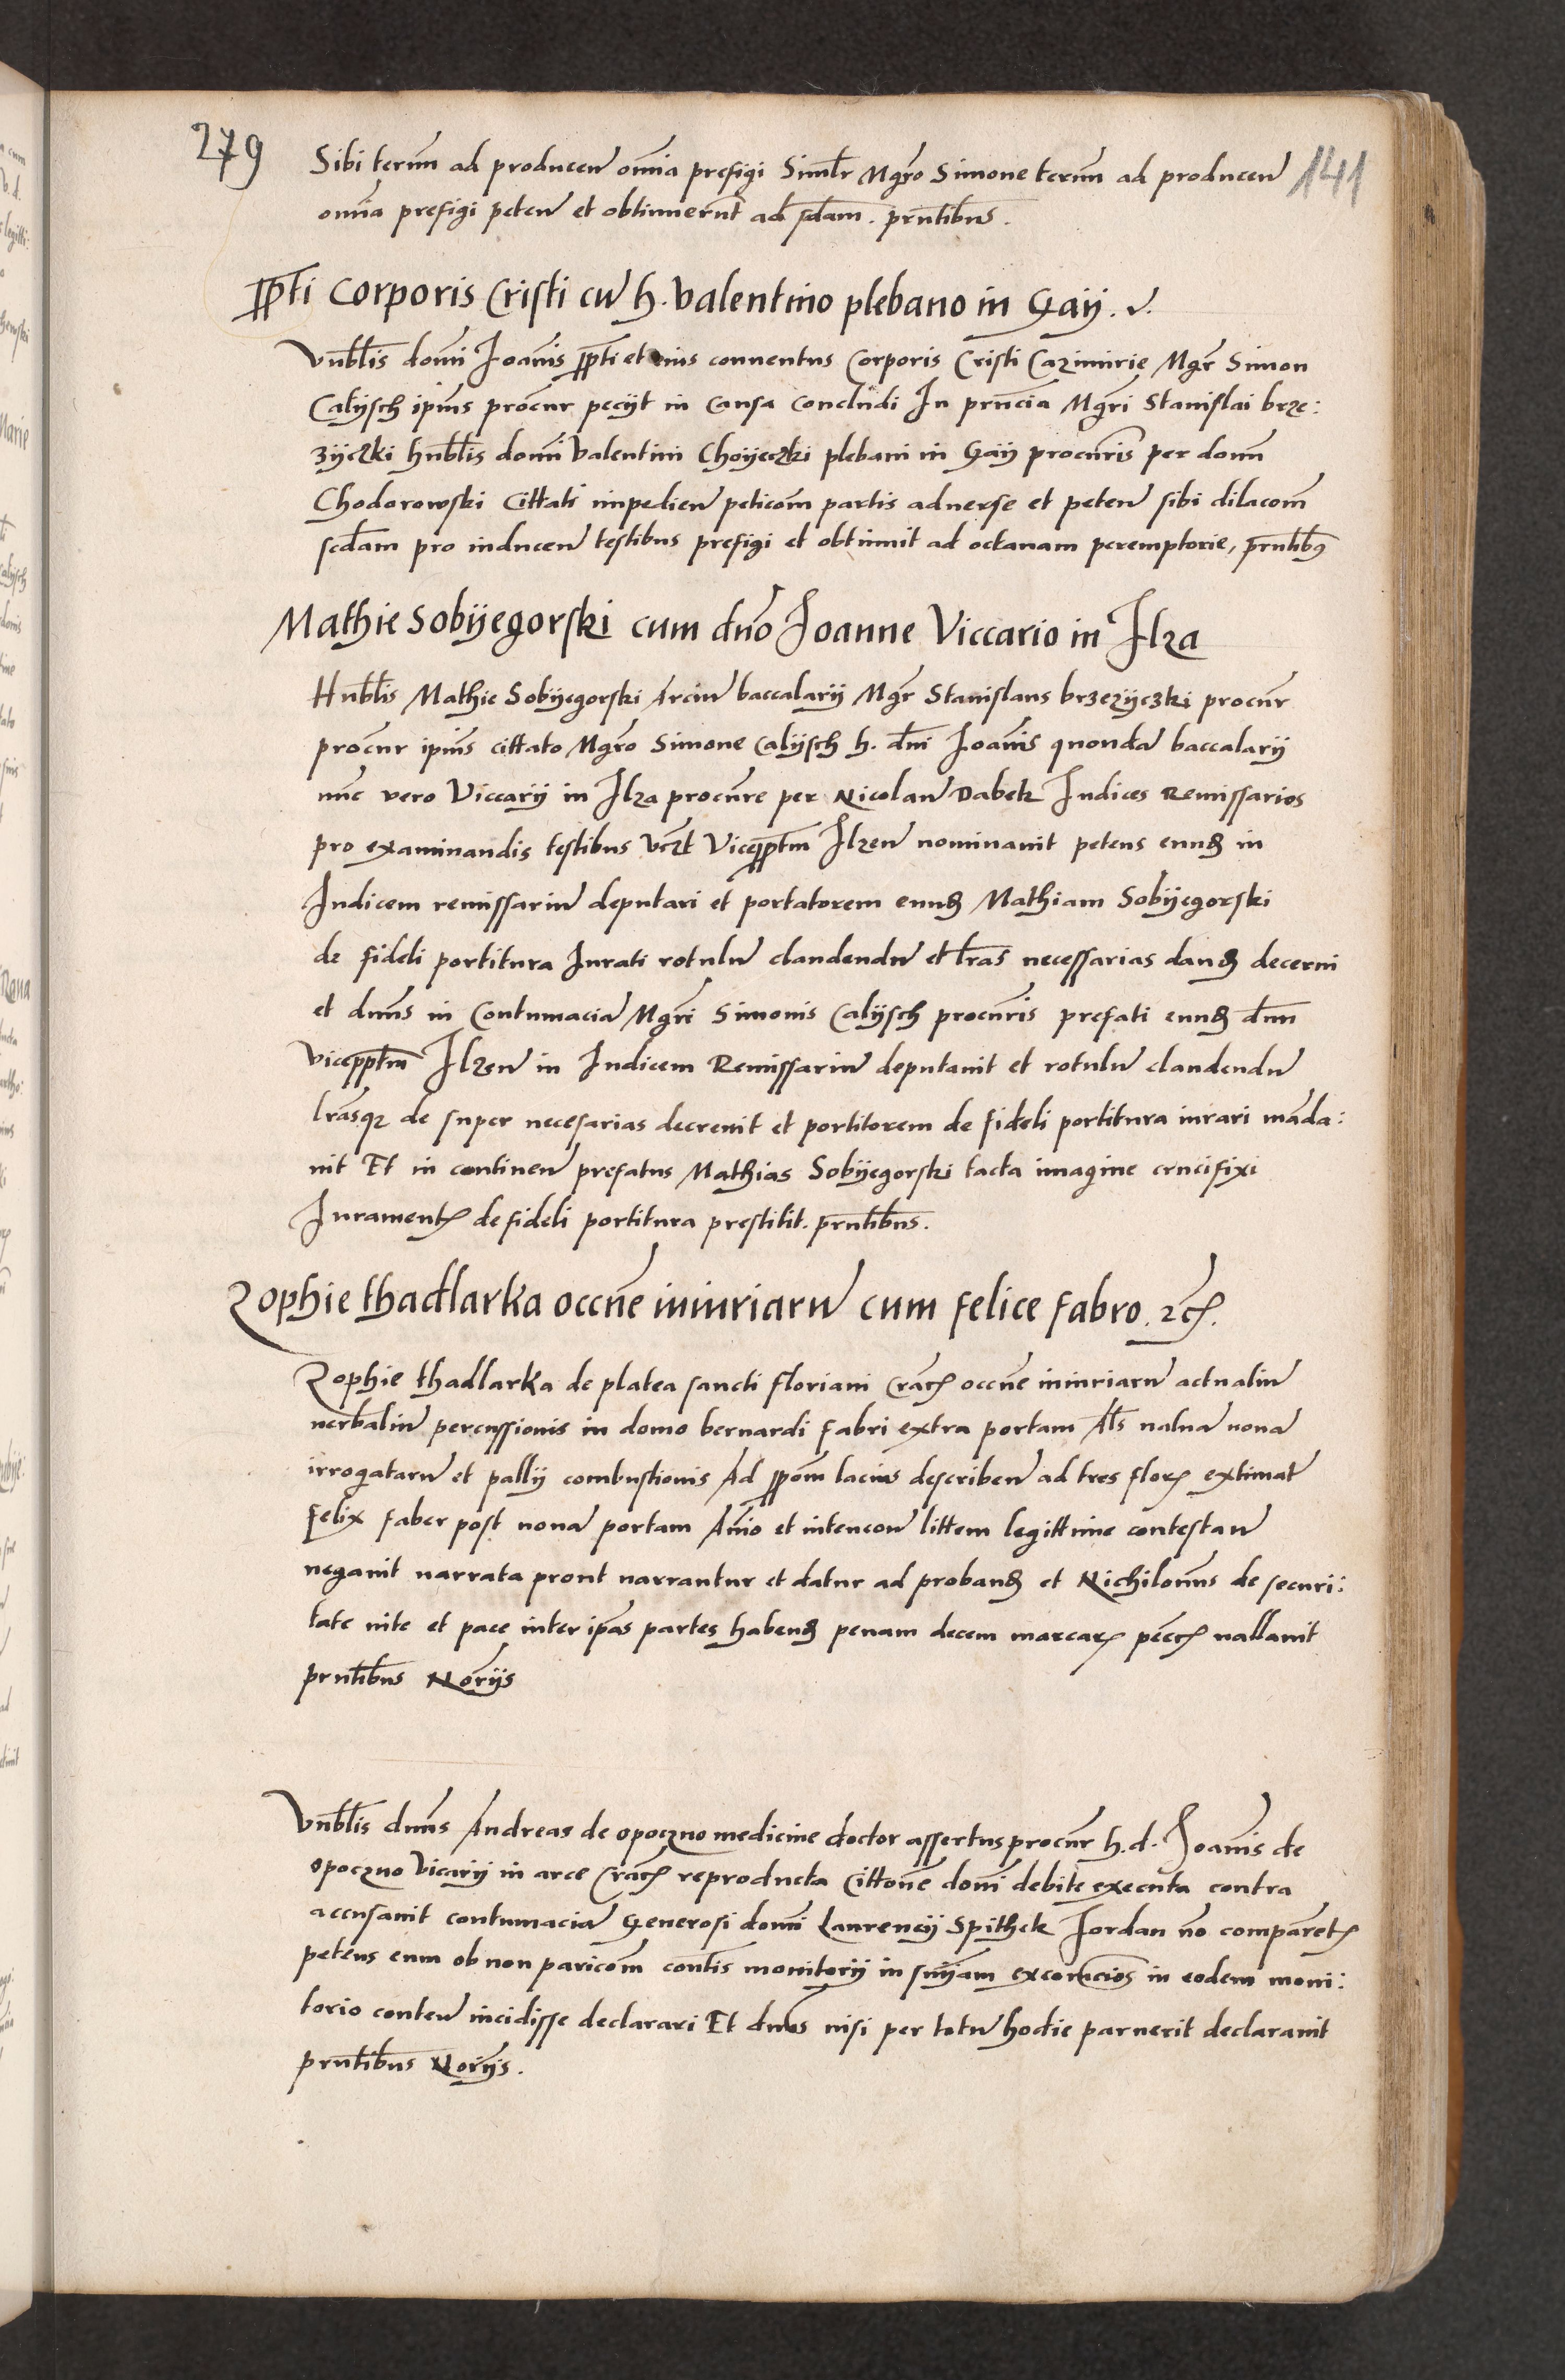 279
141
Sibi termm ad producen omnia prefigi Similr Mgro Simone termm ad producen
omnia prefigi peten et obtinuerunt ad sdam. prntibus.
ppti Corporis Cristi cu h. Valentino plebano in Gaij. v.
Vnblis domi Joanis ppti et eius conuentus Corporis Cristi Cazimirie Mgr Simon
Calijsch ipius procur pecijt in causa concludi In prncia Mgri Stanislai brze:
zijczki hnblis domi Valentini Choijeczki plebani in Gaij procuris per domm
Chodorowski Cittati impedien peticom partis aduerse et peten sibi dilacom
scdam pro inducen testibus prefigi et obtinuit ad octauam peremptorie, prntibus
Mathie Sobijegorski cum dno Joanne Viccario in Ilza
Hnblis Mathie Sobijegorski Arciu baccalarij Mgr Stanislaus brzezijczki procur
procur ipius cittato Mgro Simone Calijsch h. dni Joanis quonda baccalarij
nunc vero Viccarij in Ilza procure per Nicolau Dabek Iudices Remissarios
pro examinandis testibus vczt Vicepptm Ilzen nominauit petens eund in
Iudicem remissariu deputari et portatorem eund Mathiam Sobijegorski
de fideli portitura Iurati rotulu claudendu et lras necessarias dand decerni
et dnns in Contumacia Mgri Simonis Calijsch procuris prefati eund dnn
vicepptm Ilzen in Iudicem Remissariu deputauit et rotulu claudendu
lrasqz de super necesarias decreuit et portitorem de fideli portitura iurari manda:
uit Et in continen prefatus Mathias Sobijegorski tacta imagine crucifixi
Iuramentum de fideli portitura prestitit. prntibus.
Zophie thadlarka occne iniuriaru cum felice fabro. etc.
Zophie thadlarka de platea sancti floriani Crac occne iniuriaru actualiu
uerbaliu percussionis in domo bernardi fabri extra portam Als nalna nona
irrogataru et pallij combustionis Ad ppom lacius describen ad tres flor extimat
felix faber post nona portam Anio et intencon littem legittime contestan
negauit narrata prout narrantur et datur ad proband et Nichilomus de securi:
tate uite et pace inter ipas partes habend penam decem marcar pecc uallauit
prntibus Norijs
Vnblis dnns Andreas de opoczno medicine doctor assertus procur h. d. Joanis de
opoczno Vicarij in arce Crac reproducta Cittone domi debite executa contra
accusauit contumacia Generosi domi Laurencij Spithek Iordan no comparet
petens eum ob non paricom contis monitorij in sniam excomcios in eodem moni:
torio conten incidisse declarari Et dnns nisi per totu hodie paruerit declarauit
prntibus Norijs.